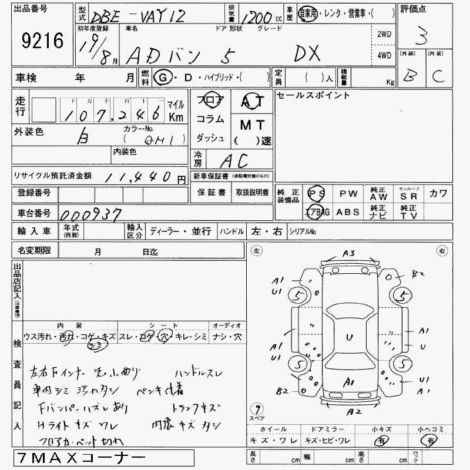 出品番号 9216
型式 DBE-VAY12
排気量 1200cc
車歴 自家用・レンタ・営業車・( )
評価点 3
初年度登録 19/8月
車名 ADバン
ドア 形状 5
グレード DX
2WD
4WD
内装 B
C
車検 年 月
燃料 G・D・ハイブリッド・( )
定員 ( )人
積載量 Kg
走行 十万 万 千 百 十 107,246 マイル Km
フロア AT
コラム MT
ダッシュ ( )速
セールスポイント
外装色 白
カラーNo. (QM1)
内装色
冷房 AC
リサイクル預託済金額 11,440円
新車保証書
保証書 取扱説明書
純正装備品 PS PW 純正AW サンルーフSR カワ
エアBAG ABS 純正ナビ 純正TV
登録番号
車台番号 000937
輸入車 年式(西暦) 輸入区分 ディーラー・並行 ハンドル 左・右 シリアルNo.
名変期限 月 日迄
出品店記入
内装 シート オーディオ
ウス汚れ・汚れ・コゲ・キズ スレ・コゲ・穴・キレ・シミ ナシ・穴
シミ
検査員記入
ハンドルスレ
車内シミ
Fバンパーハズレあり トランクキズ
Hライトキズワレ
フロアカーペット切れ
左 右
A3
A1 B2
A1 A1
U1 U1
5 5
U
5 5
U1 U1
A1
B2
A2
9 スペア
ホイール ドアミラー 小キズ 小ヘコミ
キズ・ワレ キズ・ヒビ・ワレ 有 有
長さ cm 幅 cm 高さ cm
7MAXコーナー